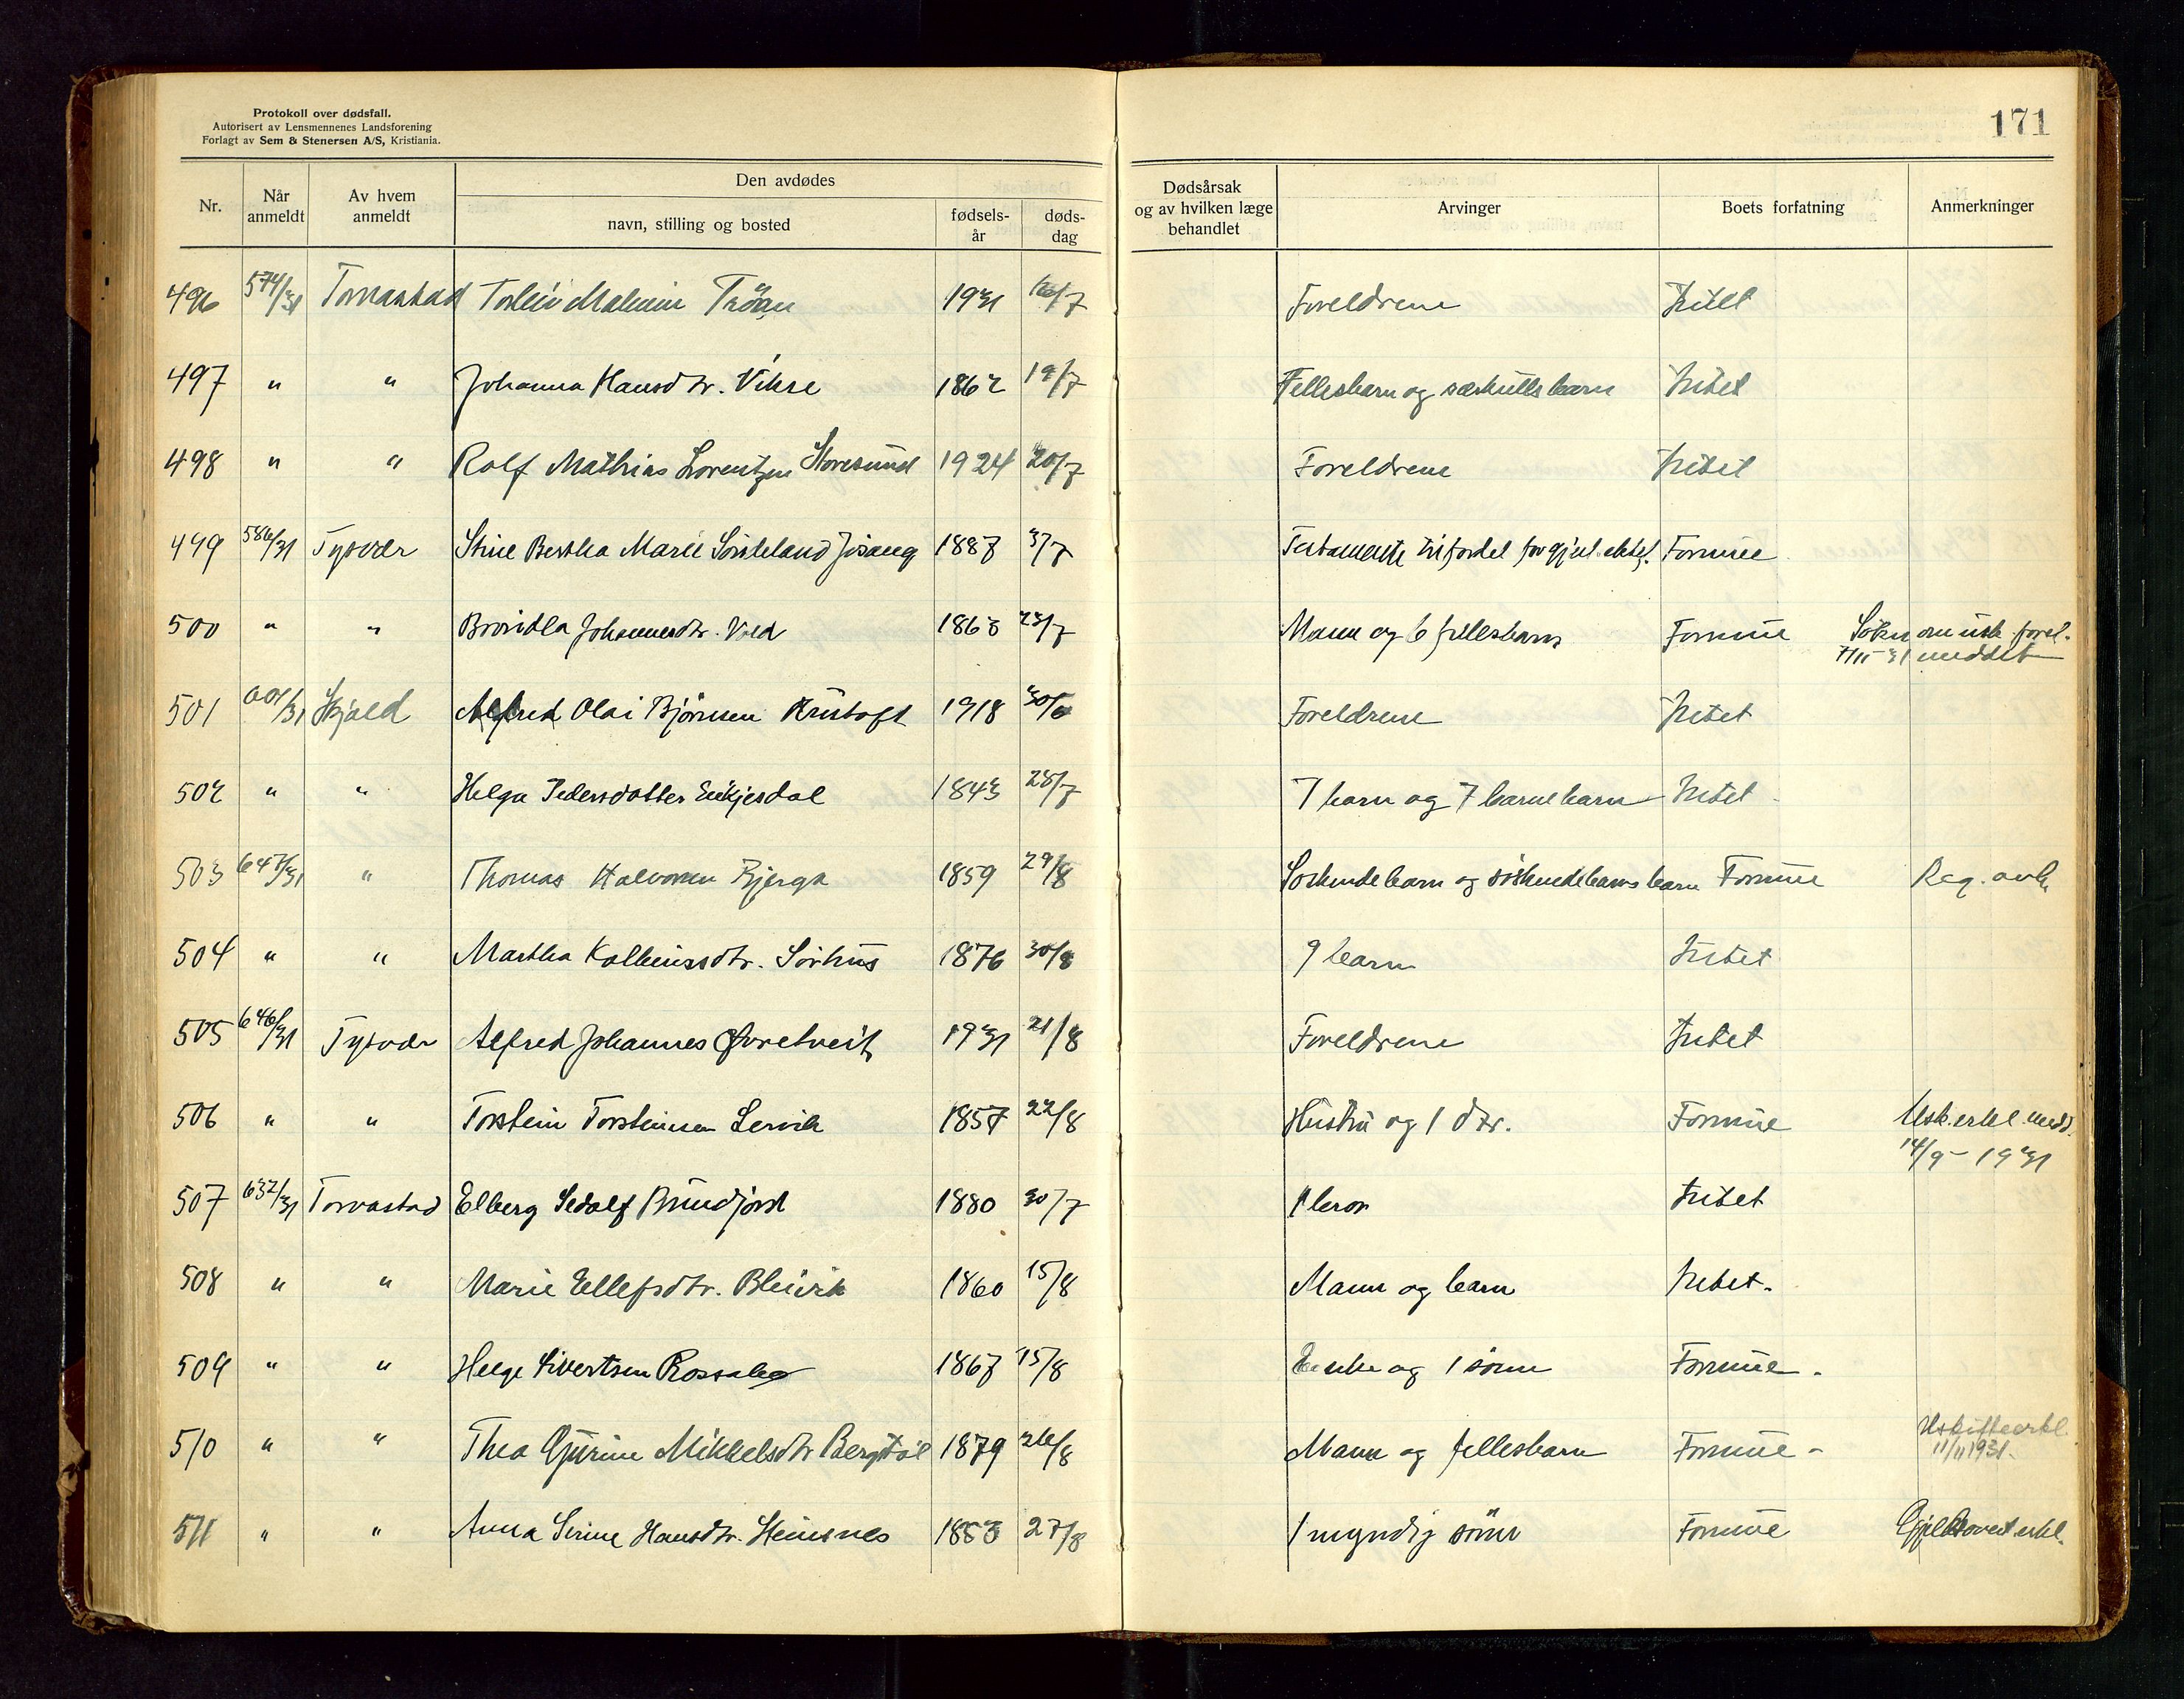 Protokoll over dødsfall.
Autorisert av Lensmennenes Landsforening
Forlagt av Sem & Stenersen A/S, Kristiania.
171
Nr. Når anmeldt Av hvem anmeldt Den avdødes navn, stilling og bosted fødselsår dødsdag Dødsårsak og av hvilken læge behandlet Arvinger Boets forfatning Anmerkninger
496 574/31 Torvastad Torleiv 1931 16/7 Foreldrene Intet
497 " " Johanna Hansdtr. Vikse 1862 19/7 Fellesbarn og særkullsbarn Intet
498 " " Rolf Mathias Lorentzen Storesund 1924 20/7 Foreldrene Intet
499 586/31 Tysvær Stine Bertha Marie Sørsteland 1887 3/7 Testamente til fordel for gjenl. ektef. Formue
500 " " Johannesdtr. 1863 23/7 Mann og 6 fellesbarn Formue Søkn om usk. forel.
7/11-31 meddelt
501 601/31 Skjold Alfred Olai Bjørnsen 1918 30/6 Foreldrene Intet
502 " " Helga Pedersdotter Eikjesdal 1843 28/7 7 barn og 7 barnebarn Intet
503 647/31 " Thomas Halvorsen Bjerga 1859 29/8 Søskendebarn og søskendebarns barn Formue Reg. avh.
504 " " Martha Kolbeinsdtr. Sørhus 1876 30/8 9 barn Intet
505 646/31 Tysvær Alfred Johannes Øvretveit 1931 21/8 Foreldrene Intet
506 " " Torstein Torsteinsen Lervik 1857 22/8 Hustru og 1 dtr. Formue Usk.erkl. medd.
14/9-1931
507 632/31 Torvastad Elberg Sedolf 1880 30/7 1 bror Intet
508 " " Marie Ellefsdtr. Bleivik 1860 15/8 Mann og barn Intet.
509 " " Helge Sivertsen Rossabø 1867 15/8 Enke og 1 sønn Formue.
510 " " Thea Gurine Mikkelsdtr 1879 26/8 Mann og fellesbarn Formue - Uskifteerkl.
11/11 1931.
511 " " Anna Serine Hansdtr. Steinsnes 1853 27/8 1 myndig sønn Formue Gjeldsovert. erkl.